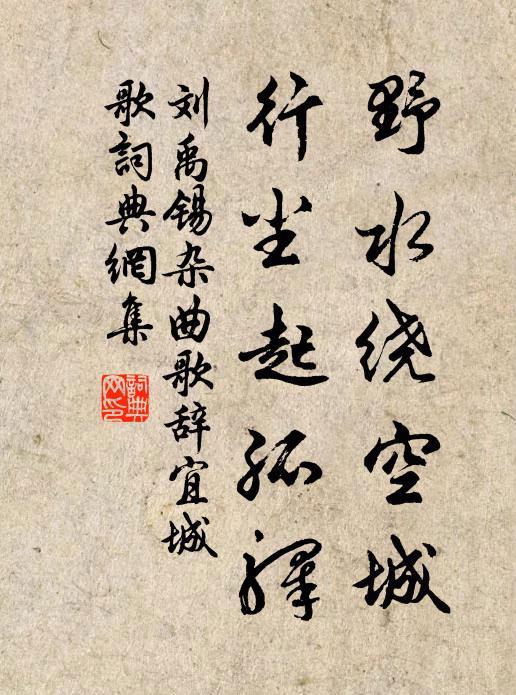 野水绕空城
行尘起孤驿
刘禹锡杂曲歌辞宜城
歌詞典網集
詞典
网印